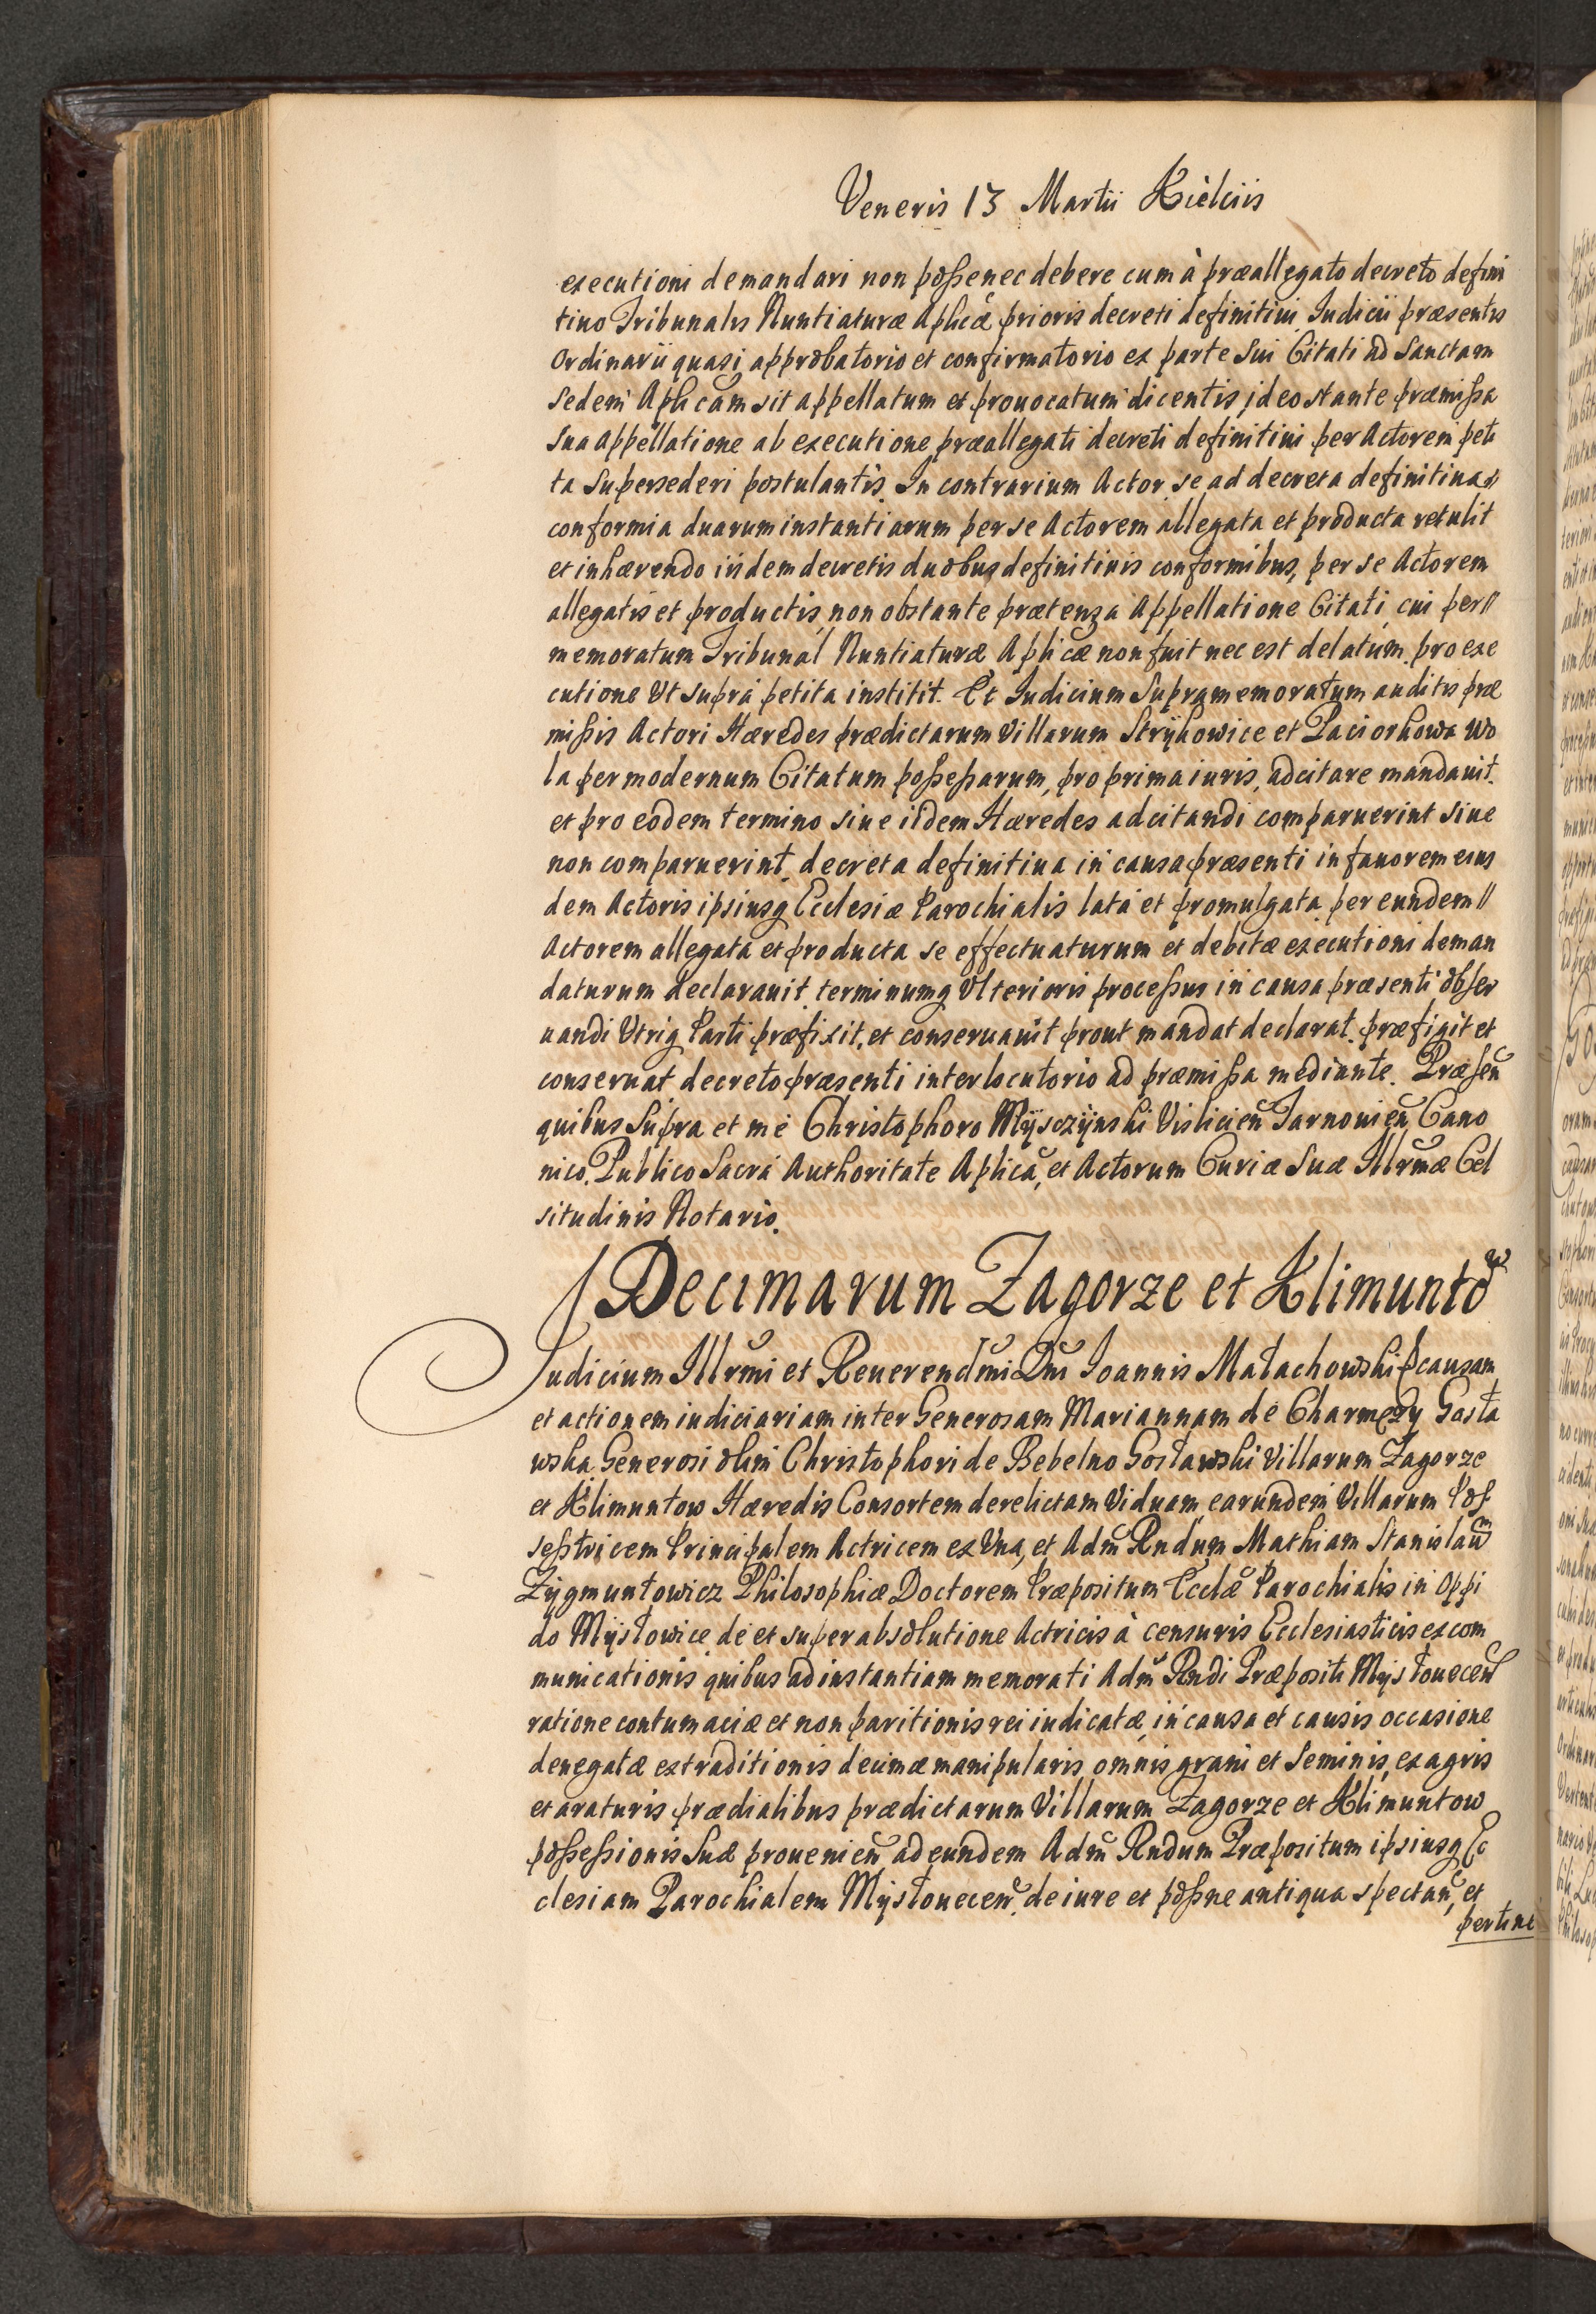 Veneris 13 Martii Kielciis
executioni demandari non posse nec debere cum à præallegato decreto defini
tiuo Tribunalis Nuntiaturæ Aplicæ prioris decreti definitiui Iudicii præsentis
Ordinarii quasi approbatorio et confirmatorio ex parte Sui Citati ad Sanctam
Sedem Aplicam sit appellatum et prouocatum dicentis, ideo stante præmissa
Sua Appellatione ab executione præallegati decreti definitiui per Actorem peti
ta Supersederi postulantis. In contrarium Actor se ad decreta definitiua
conformia duarum instantiarum per se Actorem allegata et producta retulit
et inhærendo iisdem decretis duobus definitiuis conformibus, per se Actorem
allegatis et productis, non obstante prætenza Appellatione Citati, cui per //
memoratum Tribunal Nuntiaturæ Aplicæ non fuit nec est delatum, pro exe
cutione Vt supra petita institit. Et Iudicium Supramemoratum auditis præ
missis Actori Hæredes prædictarum Villarum Stryikowice et Paciorkowa Wo
la per modernum Citatum possessarum, pro prima iuris, adcitare mandauit.
et pro eodem termino siue iidem Hæredes adcitandi comparuerint siue
non comparuerint, decreta definitiua in causa præsenti in fauorem eius
dem Actoris ipsiusq Ecclesiæ Parochialis lata et promulgata per eundem //
Actorem allegata et producta se effectuaturum et debitæ executioni deman
daturum declarauit. terminumq Vlterioris processus in causa præsenti obser
uandi Vtriq Parti præfixit, et conseruauit prout mandat declarat. præfigit et
conseruat decreto præsenti interlocutorio ad præmissa mediante. Præsen
quibus Supra et me Christophoro Mÿsczÿnski Vislicien Tarnouien Cano
nico, Publico Sacra Authoritate Aplica, et Actorum Curiæ Suæ Illrmæ Cel
situdinis Notario.
Decimarum Zagorze et Klimuntow
Iudicium Illrmi et Reuerendmi Dni Ioannis Małachowski causam
et actionem iudiciariam inter Generosam Mariannam de Charmęzy Gosła
wska Generosi olim Christophori de Bebelno Gosławski Villarum Zagorze
et Klimuntow Hæredis Consortem derelictam Viduam, earundem Villarum Pos
sestricem Principalem Actricem ex Vna, et Adm Rndum Mathiam Stanislaum
Zÿgmuntowicz Philosophiæ Doctorem Præpositum Ecclæ Parochialis in Oppi
do Mÿsłowice de et super absolutione Actricis à censuris Ecclesiasticis excom
municationis quibus ad instantiam memorati Adm Rndi Præpositi Mÿsłouecen
ratione contumaciæ et non paritionis rei iudicatæ, in causa et causis occasione
denegatæ extraditionis decimæ manipularis, omnis grani et Seminis, ex agris
et araturis prædialibus prædictarum Villarum Zagorze et Klimuntow
possessionis Suæ prouenien ad eundem Adm Rndum Præpositum ipsiusq Ec
clesiam Parochialem Mÿsłouecen. de iure et possne antiqua spectan, et
pertine